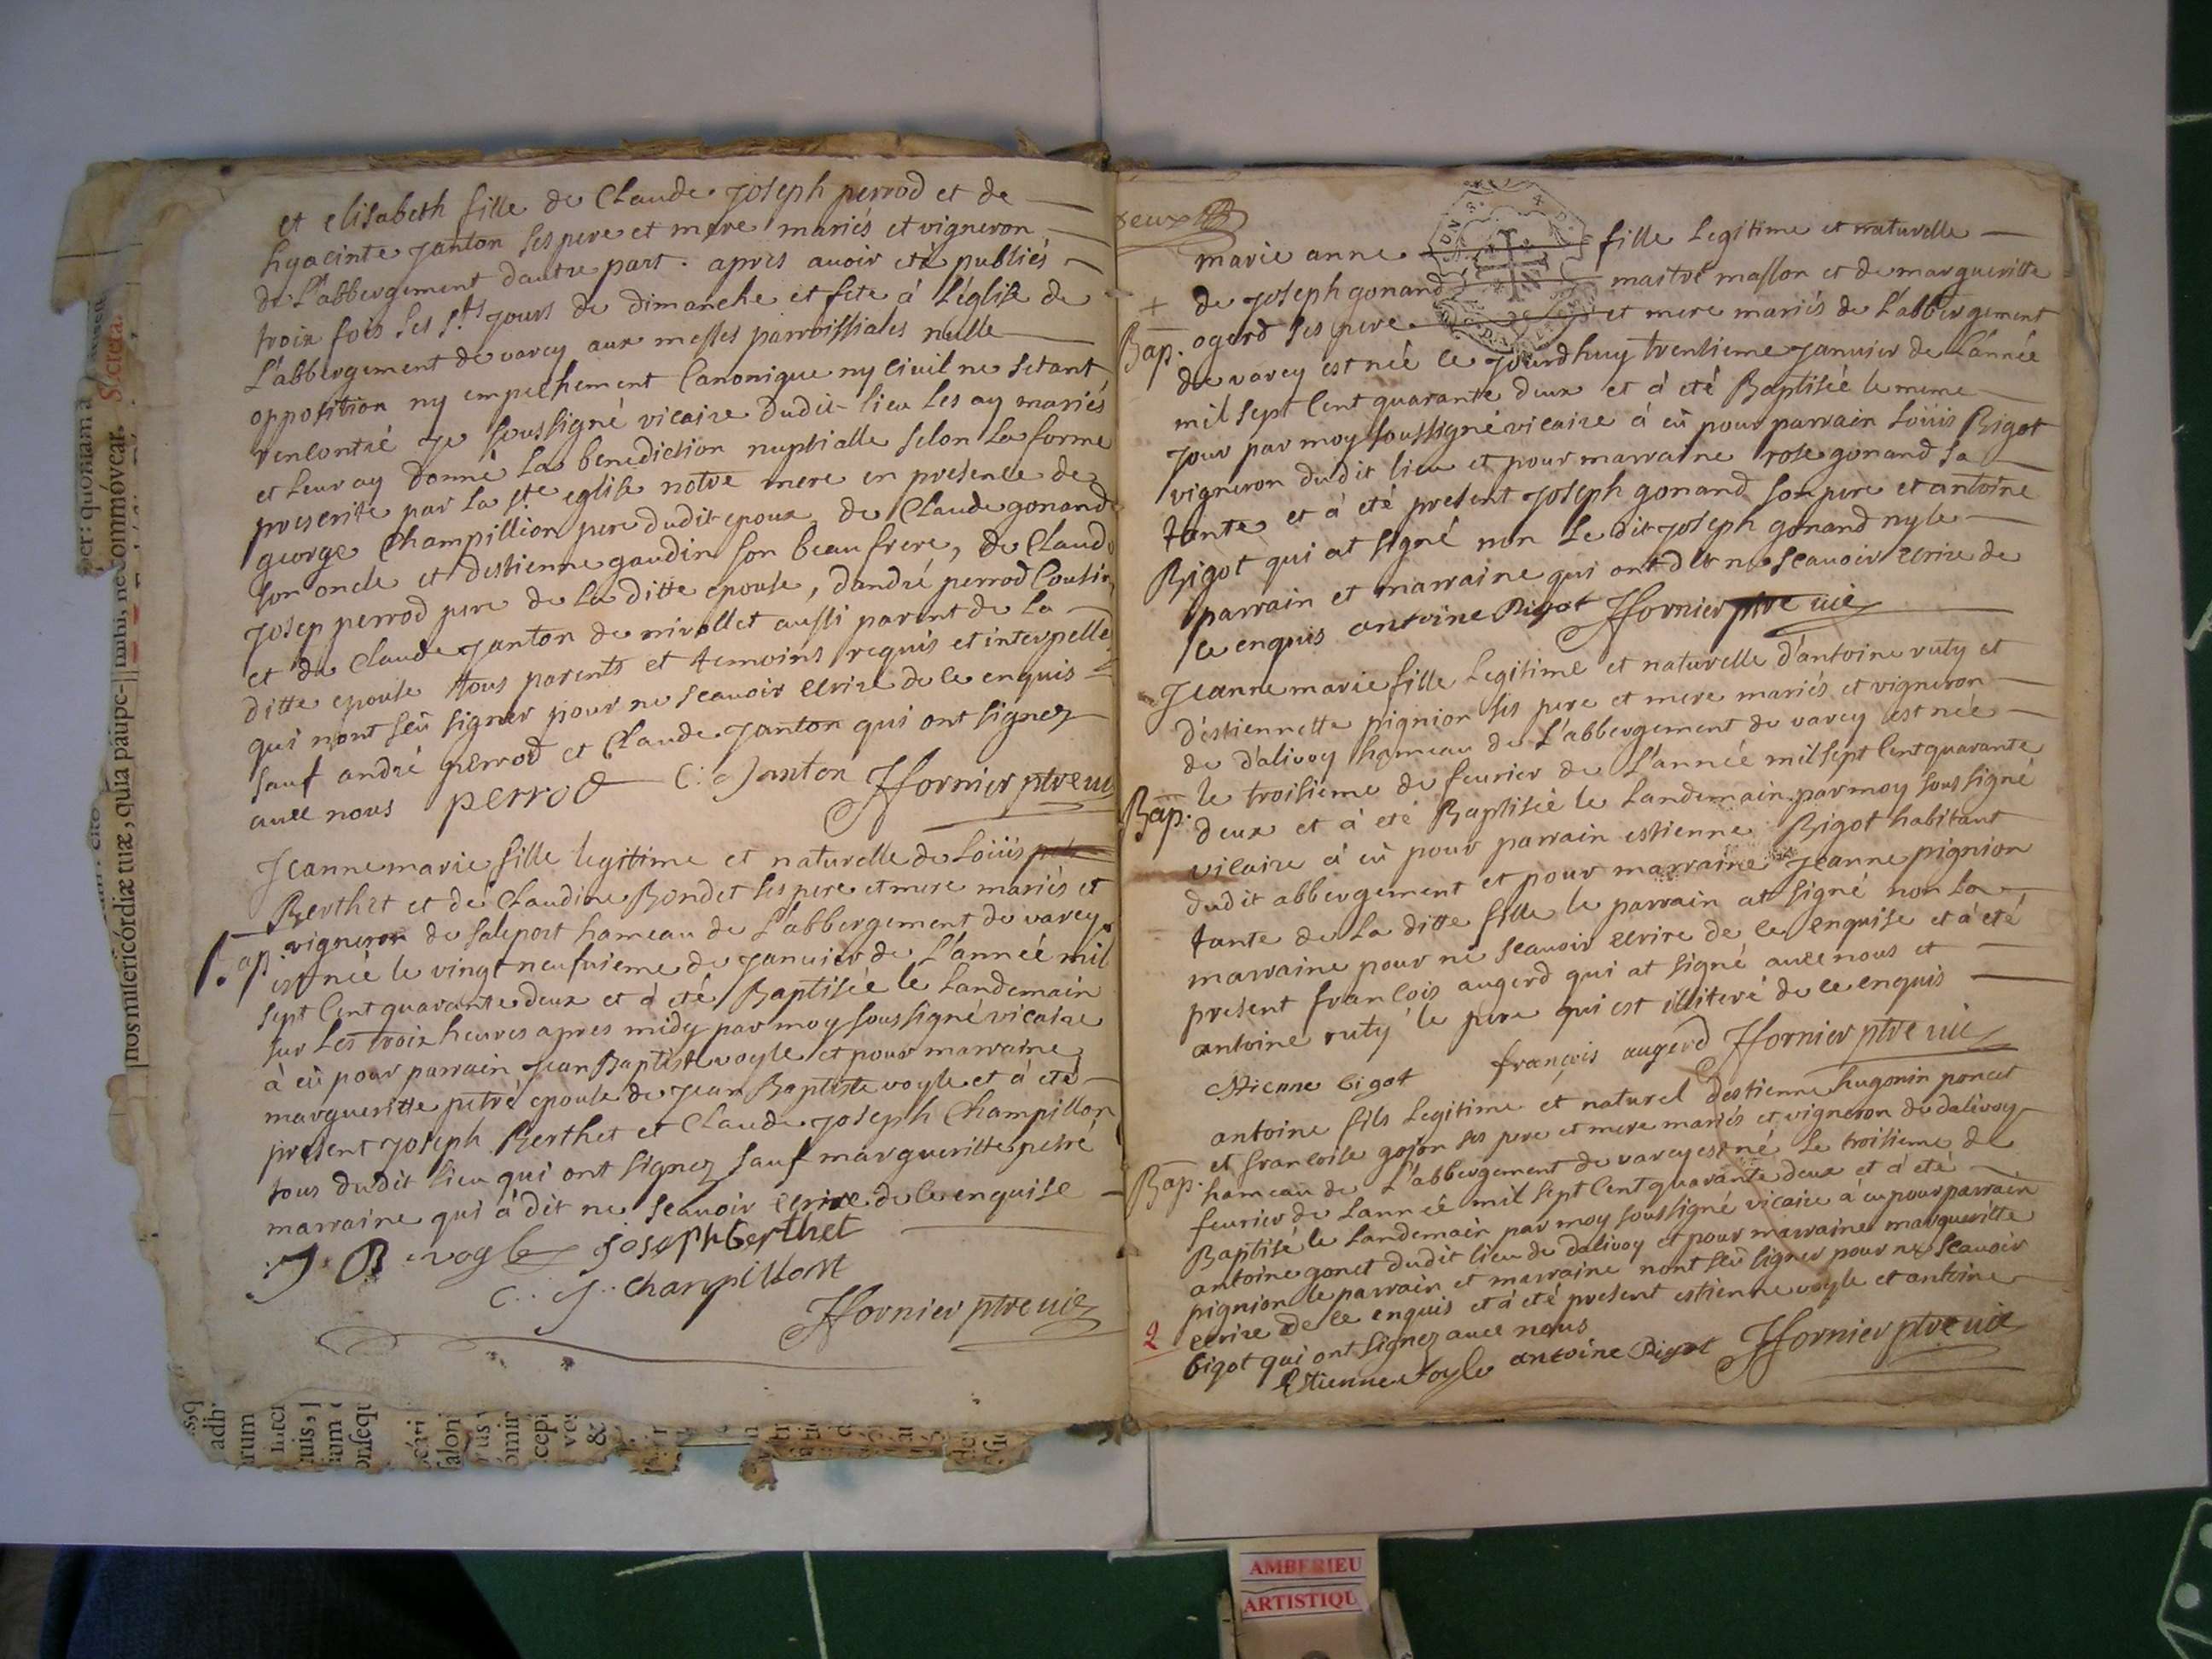 et elisabeth fille de Claude Joseph perrod et de
hyacinte Janton ses pere et mere mariés et vigneron
de L'abbergement dautre part. apres avoir eté publiés
trois fois les sts jours de dimanche et fete à L'église de
L'abbergement de varey aux messes parroissiales nulle
opposition ny empechement Canonique ny Civil ne setant
rencontré Je soussigné vicaire dudit lieu les ay mariés
et leur ay donné La benediction nuptialle selon La forme
prescrite par La ste eglise notre mere en presence de
george Champillion pere dudit epoux de Claude gonand
son oncle et destienne gaudin son beau frere, de Claude
Josep perrod pere de La ditte epouse, dandré perrod Cousin
et de Claude Janton de nivollet aussi parent de La
ditte epouse tous parents et temoins requis et interpellé
qui nont seû signer pour ne scavoir ecrire de ce enquis
sauf andré perrod et Claude Janton qui ont signez
avec nous perrod C: Janton Hornier ptre vic
Jeanne marie fille legitime et naturelle de Loüis
Berthet et de Claudine Bondet ses pere et mere mariés et
Bap. vigneron de saleport hameau de L'abbergement de varey
est née le vingt neufvieme de Janvier de L'année mil
sept Cent quarante deux et à eté Baptisée le Landemain
sur Les trois heures apres midy par moy soussigné vicaire
à eû pour parrain Jean Baptiste voyle et pour marraine
margueritte petré epouse de Jean Baptiste voyle et à eté
present Joseph Berthet et Claude Joseph Champillon
tous dudit lieu qui ont signez sauf margueritte petré
marraine qui à dit ne scavoir ecrire de ce enquise
J B voyle joseph berthet
C: J: Champillon
Hornier ptre vic
deux
marie anne fille Legitime et naturelle
de Joseph gonand maitre masson et de margueritte
Bap. ogerd ses pere et mere mariés de L'abbergement
de varey est née ce Jourdhuy trentieme Janvier de L'année
mil sept Cent quarante deux et à eté Baptisée le meme
Jour par moy soussigné vicaire à eû pour parrain Loüis Bigot
vigneron dudit lieu et pour marraine rose gonand sa
tante et à eté present Joseph gonand son pere et antoine
Bigot qui at signé non Le dit Joseph gonand ny le
parrain et marraine qui ont dit ne scavoir ecrire de
ce enquis antoine Bigot Hornier ptre vic
Jeanne marie fille Legitime et naturelle d'antoine ruty et
d'estiennette pignion ses pere et mere mariés et vigneron
de dalivoy hameau de L'abbergement de varey est née
le troisieme de fevrier de L'année mil sept Cent quarante
Bap. deux et à eté Baptisée le Landemain par moy soussigné
vicaire à eû pour parrain estienne Bigot habitant
dudit abbergement et pour marraine Jeanne pignion
tante de La ditte fille le parrain at signé non La
marraine pour ne scavoir ecrire de ce enquise et à eté
present francois augerd qui at signé avec nous et
antoine ruty le pere qui est illiteré de ce enquis
Etienne bigot françois augerd Hornier ptre vic
antoine fils Legitime et naturel destienne hugonin poncet
et francoise gojon ses pere et mere mariés et vigneron de dalivoy
Bap. hameau de L'abbergement de varey est né Le troisieme de
fevrier de Lannée mil sept Cent quarante deux et à eté
Baptisé le Landemain par moy soussigné vicaire à eu pour parrain
antoine gonet dudit lieu de dalivoy et pour marraine margueritte
pignion le parrain et marraine nont seû signer pour ne scavoir
ecrire de ce enquis et à eté present estienne voyle et antoine
2 bigot qui ont signez avec nous
Estienne Voyle antoine Bigot Hornier ptre vic
AMBERIEU
ARTISTIQU
nos misericórdiæ tuæ, quia páupe-
Secreta.